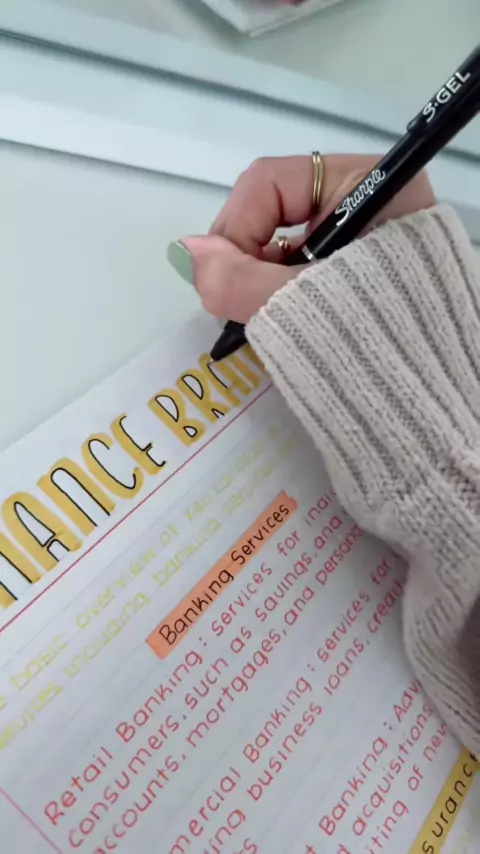 S·GEL
Sharpie
NANCE BRA
basic overview of key
services including banking services
Banking Services
Retail Banking: services for
consumers, such as savings, and
accounts, mortgages, and persona
mercial Banking: services for
ing business loans,
t Banking: Adv
d acquisitions
iting of new
surance